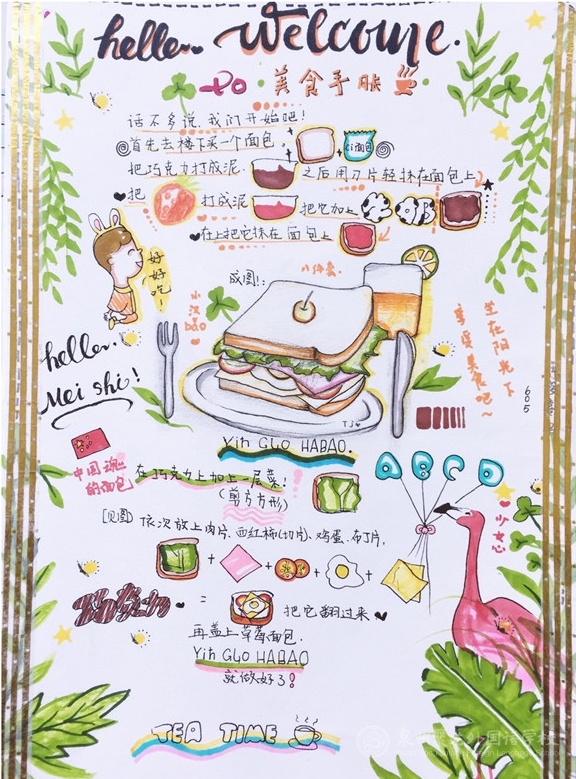 hello.. Welcome.
美食手账
话不多说，我们开始吧！
首先去楼下买一个面包
面包
把巧克力打成泥
之后用刀片轻抹在面包上
把
打成泥
把它加上
牛奶
在上把它抹在面包上
好好吃！
成图！:
小汉
bǎo
坐在阳光下
享受美食吧～
605
hello..
Mei shi!
TJ
Yin GUO HABAO.
中国魂
的面包
在巧克力上加上一层菜！
(剪方方形)
ABCD
少女心
[见图]
依次放上肉片、西红柿(切片)、鸡蛋、布丁片,
+ + + +
=
把它翻过来
再盖上草莓面包.
Yin GUO HABAO
就做好了!
TEA TIME